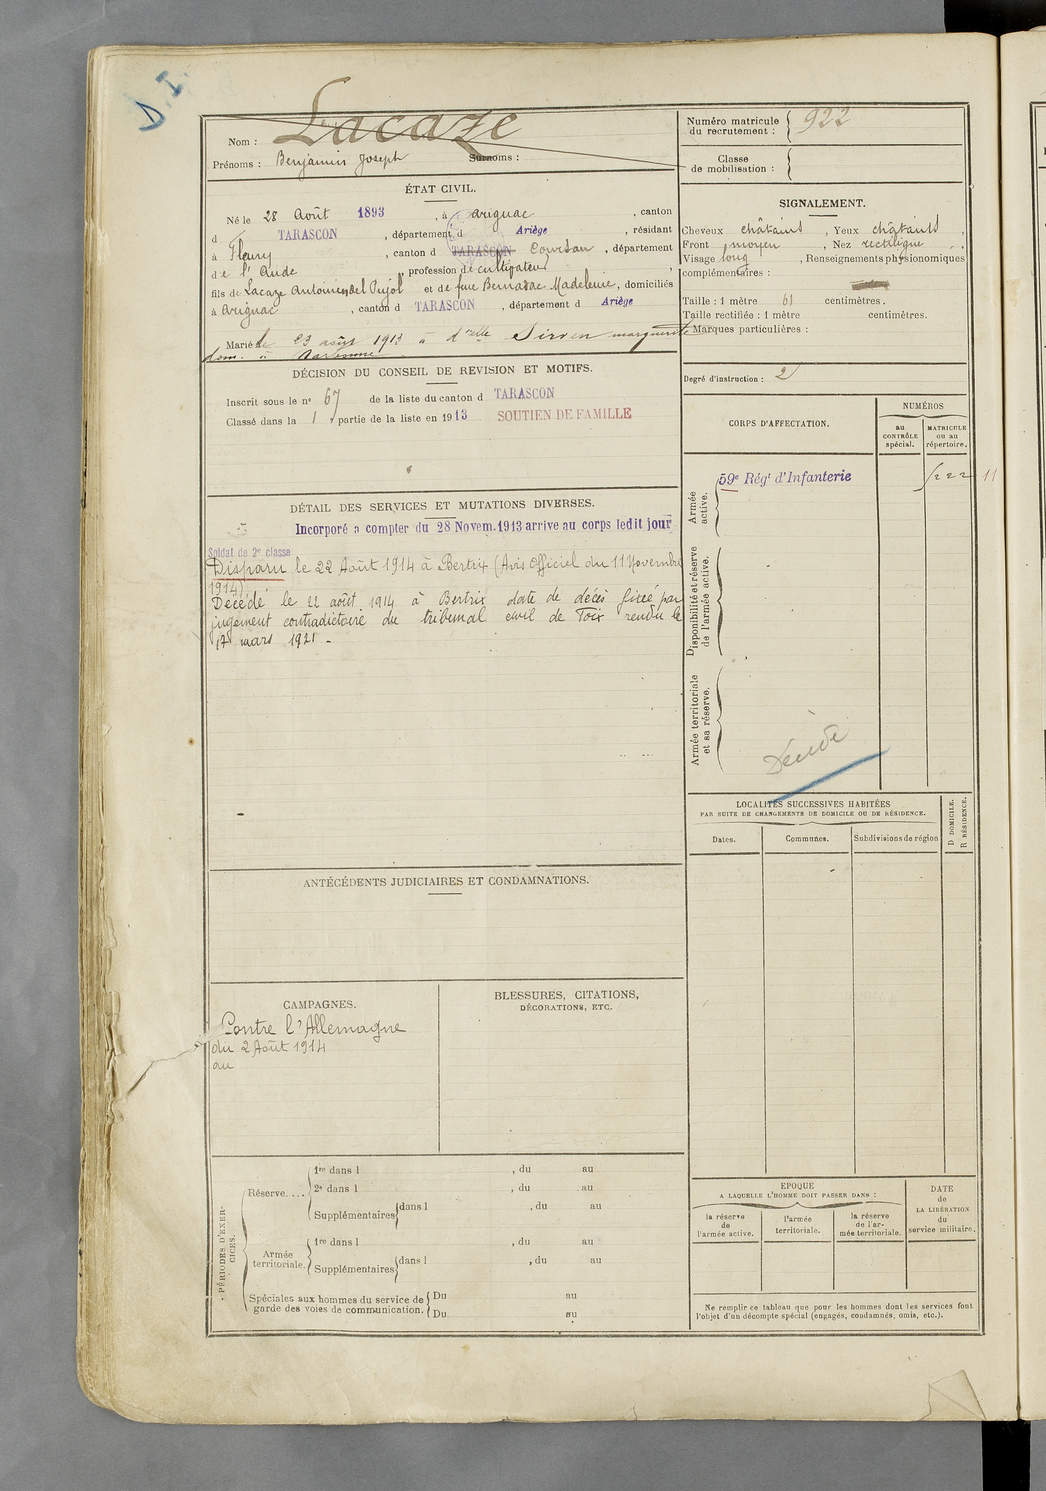 D. I.
Nom : Lacaze
Prénoms : Benjamin Joseph Surnoms :
Numéro matricule du recrutement : 922
Classe de mobilisation :
ÉTAT CIVIL.
Né le 28 Août 1893, à Arignac, canton
d TARASCON, département d Ariège, résidant
à Fleury, canton d TARASCON Coursan, département
de l'Aude, profession de cultivateur
fils de Lacaze Antoine del Pujol et de feue Bernadac Madeleine, domiciliés
à Arignac, canton d TARASCON, département d Ariège
Marié le 23 août 1913 à delle Sirven marguerite
dom. à Narbonne
SIGNALEMENT.
Cheveux châtains, Yeux châtains,
Front moyen, Nez rectiligne,
Visage long, Renseignements physionomiques
complémentaires :
Taille : 1 mètre 61 centimètres.
Taille rectifiée : 1 mètre centimètres.
Marques particulières :
Degré d'instruction : 2
DÉCISION DU CONSEIL DE REVISION ET MOTIFS.
Inscrit sous le no 67 de la liste du canton d TARASCON
Classé dans la 1 partie de la liste en 1913 SOUTIEN DE FAMILLE
CORPS D'AFFECTATION.
NUMÉROS
au CONTRÔLE spécial.
MATRICULE ou au répertoire.
Armée active.
59e Régt d'Infanterie
11
Disponibilité et réserve de l'armée active.
Armée territoriale et sa réserve.
Décédé
DÉTAIL DES SERVICES ET MUTATIONS DIVERSES.
Incorporé a compter du 28 Novem. 1913 arrive au corps ledit jour
Soldat de 2e classe
Disparu le 22 Août 1914 à Bertrix (Avis Officiel du 11 Novembre
1914)
Décédé le 22 août 1914 à Bertrix date de décès fixée par
jugement contradictoire du tribunal civil de Foix rendu le
17 mars 1921 -
LOCALITÉS SUCCESSIVES HABITÉES
PAR SUITE DE CHANGEMENTS DE DOMICILE OU DE RÉSIDENCE.
Dates. Communes. Subdivisions de région
D DOMICILE.
R RÉSIDENCE.
ANTÉCÉDENTS JUDICIAIRES ET CONDAMNATIONS.
CAMPAGNES.
Contre l'Allemagne
du 2 Août 1914
au
BLESSURES, CITATIONS,
DÉCORATIONS, ETC.
PÉRIODES D'EXERCICES.
Réserve....
1re dans l , du au
2e dans l , du au
Supplémentaires dans l , du au
Armée territoriale.
1re dans l , du au
Supplémentaires dans l , du au
Spéciales aux hommes du service de garde des voies de communication.
Du au
Du au
EPOQUE
A LAQUELLE L'HOMME DOIT PASSER DANS :
la réserve de l'armée active.
l'armée territoriale.
la réserve de l'armée territoriale.
DATE de LA LIBÉRATION du service militaire.
Ne remplir ce tableau que pour les hommes dont les services font
l'objet d'un décompte spécial (engagés, condamnés, omis, etc.).